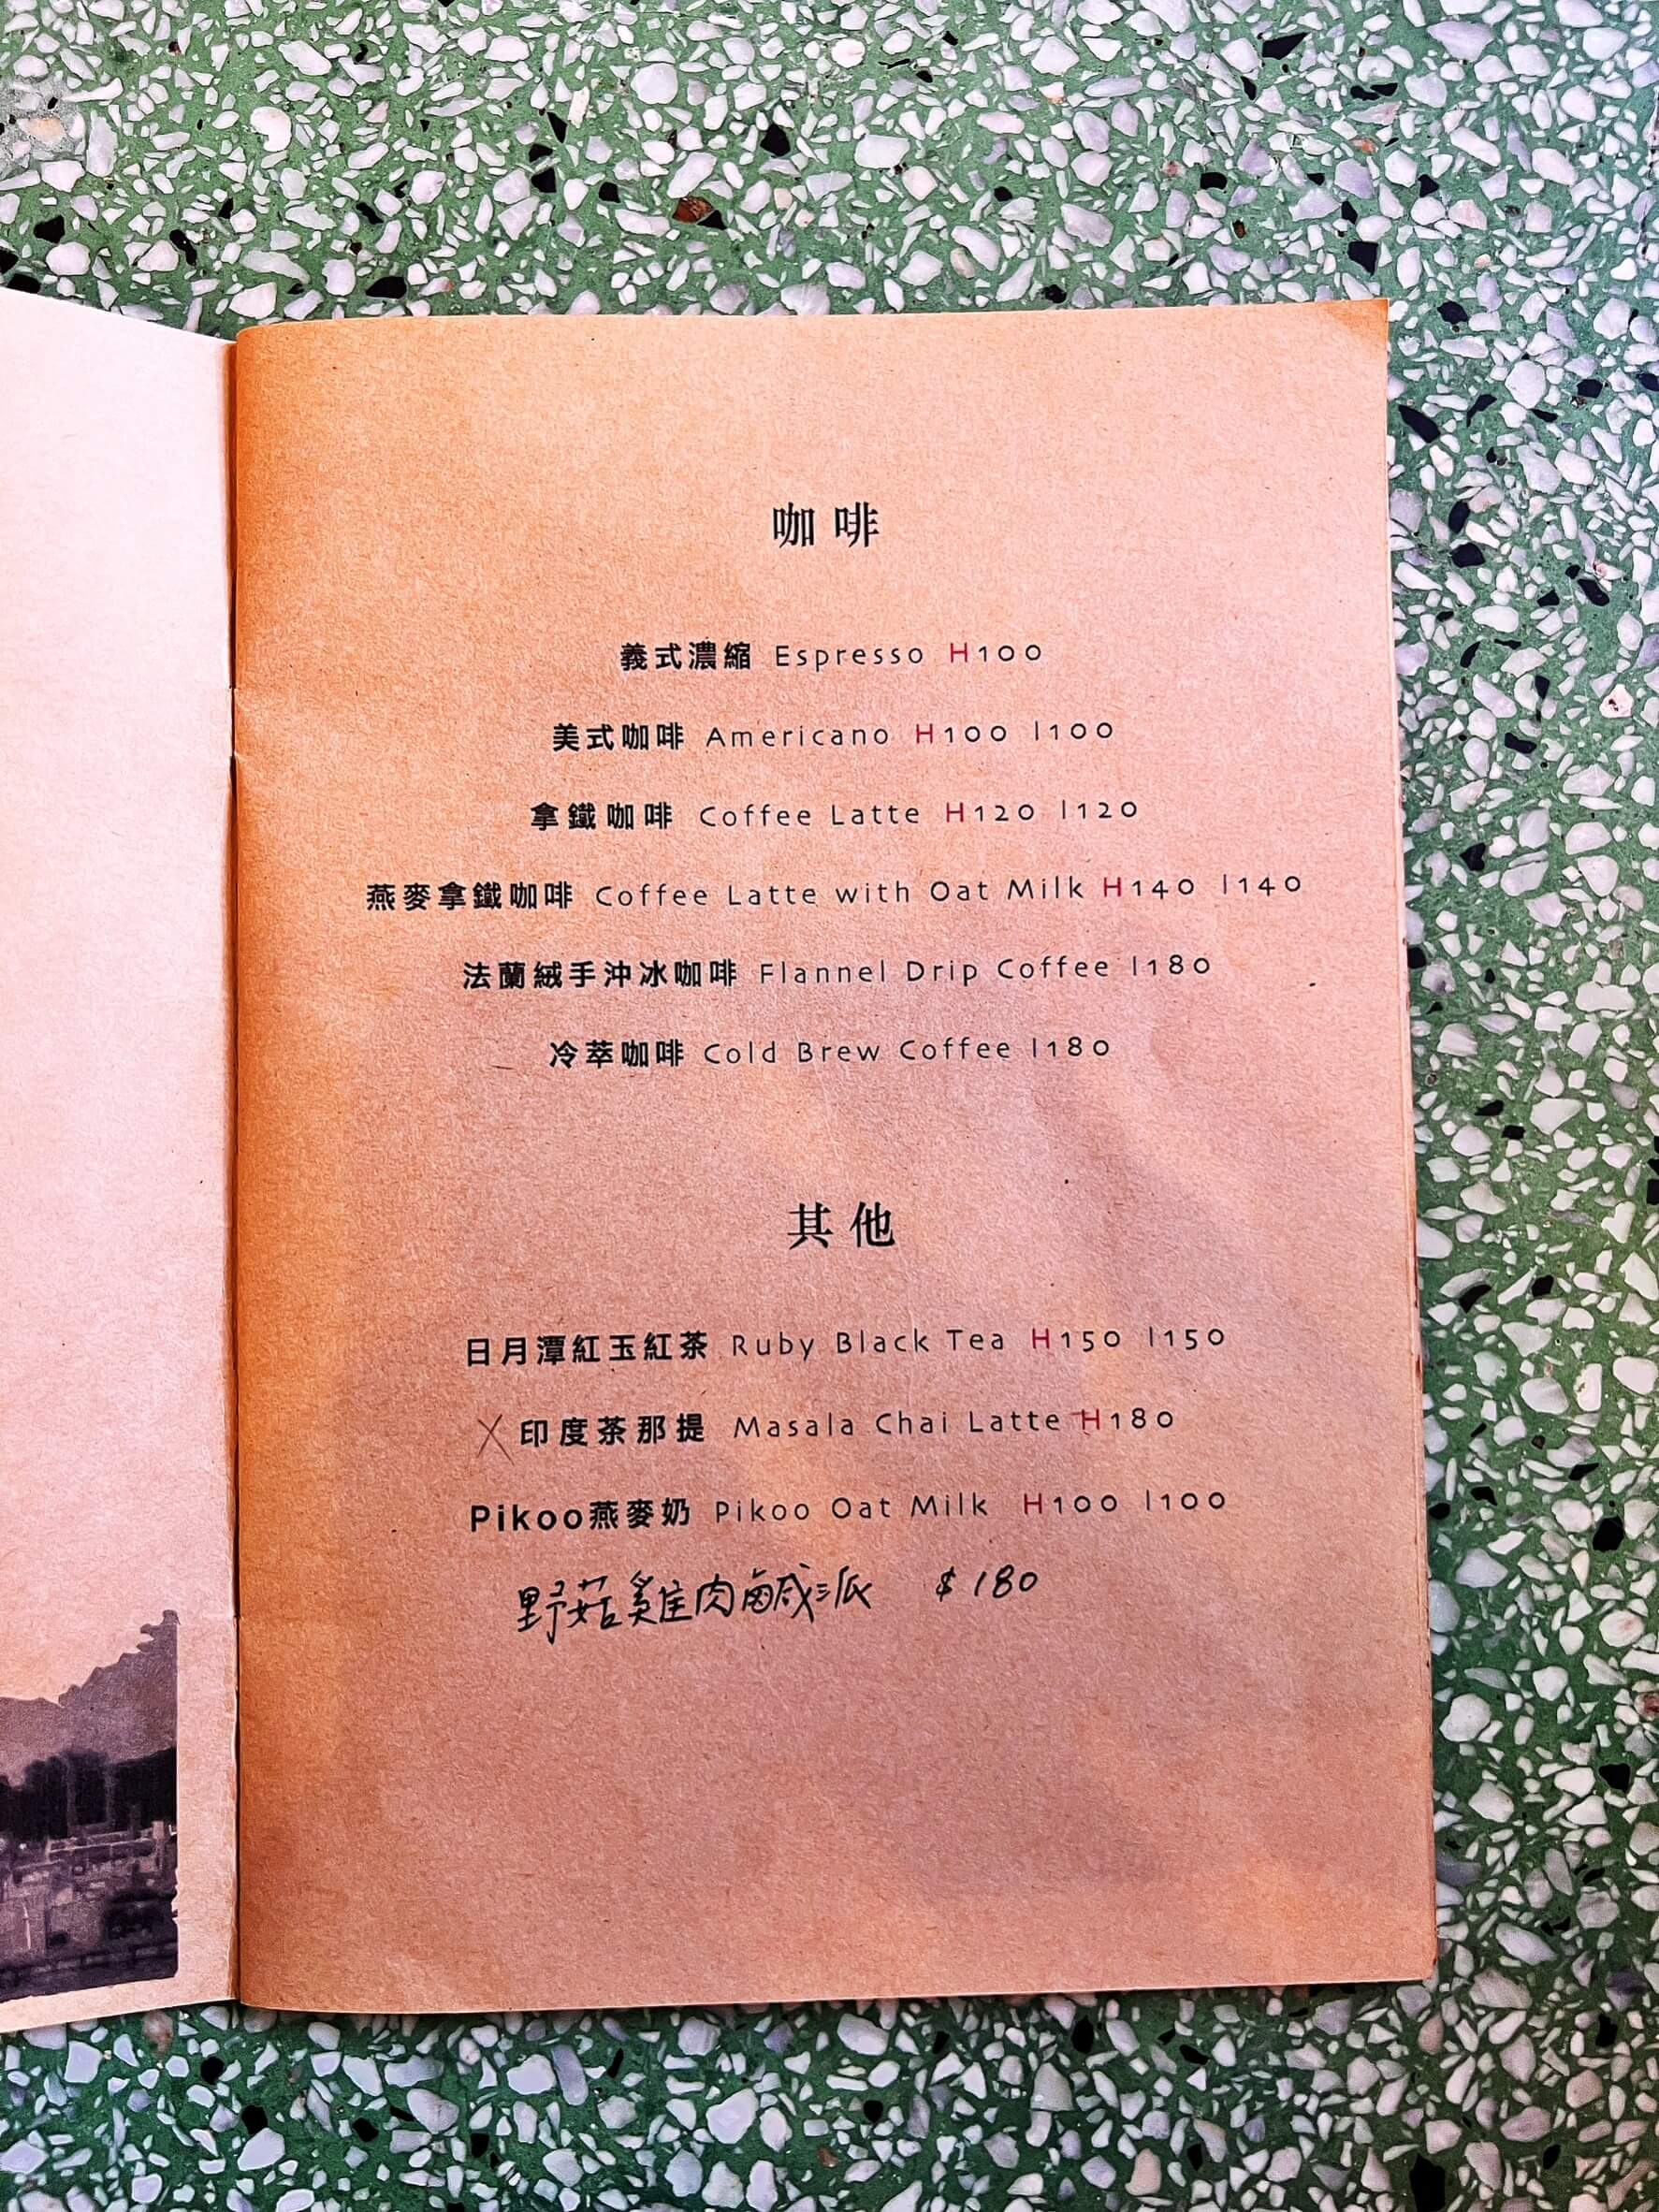 咖啡
義式濃縮 Espresso H100
美式咖啡 Americano H100 I100
拿鐵咖啡 Coffee Latte H120 I120
燕麥拿鐵咖啡 Coffee Latte with Oat Milk H140 I140
法蘭絨手沖冰咖啡 Flannel Drip Coffee I180
冷萃咖啡 Cold Brew Coffee I180
其他
日月潭紅玉紅茶 Ruby Black Tea H150 I150
X 印度茶那提 Masala Chai Latte H180
Pikoo燕麥奶 Pikoo Oat Milk H100 I100
野菇雞肉鹹派 $180